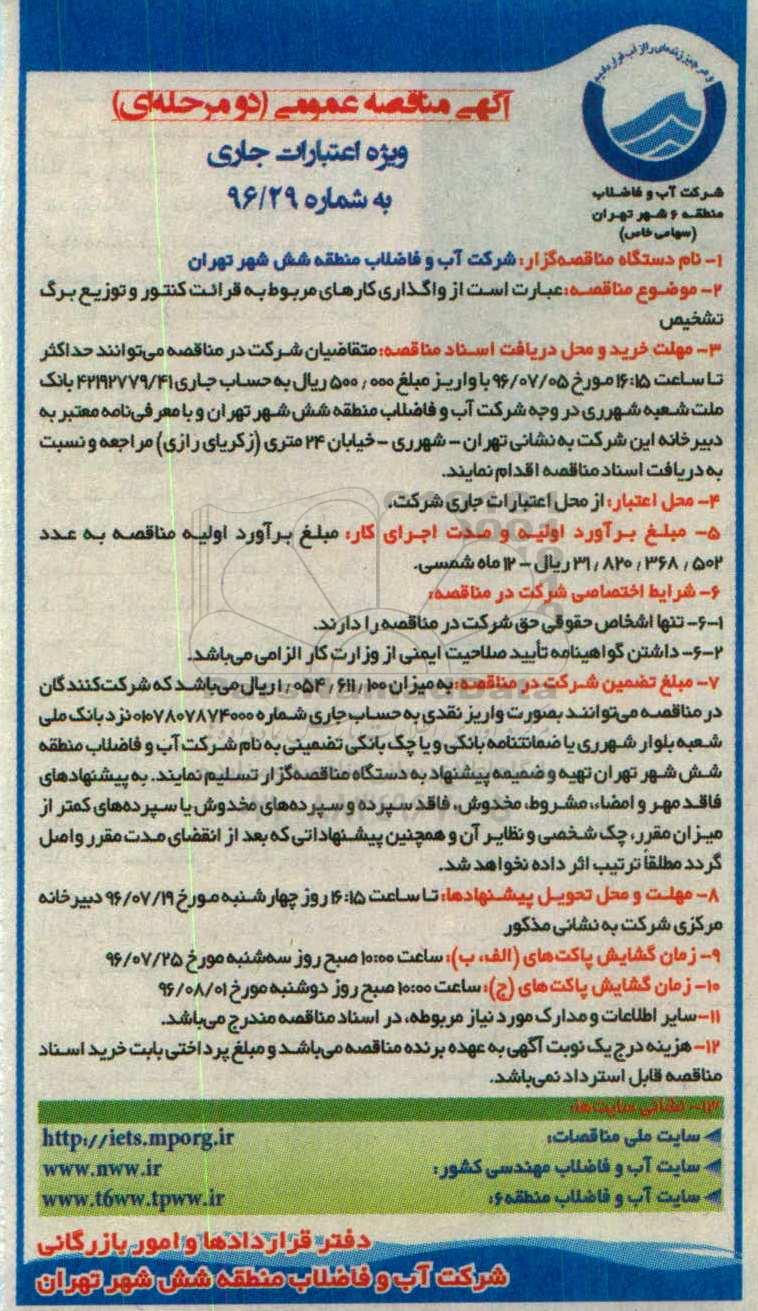 و من الماء کل شیء حی
آگهی مناقصه عمومی (دو مرحله‌ای)
ویژه اعتبارات جاری
به شماره ۹۶/۲۹
شرکت آب و فاضلاب
منطقه ۶ شهر تهران
(سهامی خاص)
۱- نام دستگاه مناقصه‌گزار: شرکت آب و فاضلاب منطقه شش شهر تهران
۲- موضوع مناقصه: عبارت است از واگذاری کارهای مربوط به قرائت کنتور و توزیع برگ
تشخیص
۳- مهلت خرید و محل دریافت اسناد مناقصه: متقاضیان شرکت در مناقصه می‌توانند حداکثر
تا ساعت ۱۶:۱۵ مورخ ۹۶/۰۷/۰۵ با واریز مبلغ ۵۰۰,۰۰۰ ریال به حساب جاری ۴۲۱۹۲۷۷۹/۴۱ بانک
ملت شعبه شهرری در وجه شرکت آب و فاضلاب منطقه شش شهر تهران و با معرفی‌نامه معتبر به
دبیرخانه این شرکت به نشانی تهران – شهرری – خیابان ۲۴ متری (زکریای رازی) مراجعه و نسبت
به دریافت اسناد مناقصه اقدام نمایند.
۴- محل اعتبار: از محل اعتبارات جاری شرکت.
۵- مبلغ برآورد اولیه و مدت اجرای کار: مبلغ برآورد اولیه مناقصه به عدد
۳۱,۸۲۰,۳۶۸,۵۰۲ ریال – ۱۲ ماه شمسی.
۶- شرایط اختصاصی شرکت در مناقصه:
۶-۱- تنها اشخاص حقوقی حق شرکت در مناقصه را دارند.
۶-۲- داشتن گواهینامه تأیید صلاحیت ایمنی از وزارت کار الزامی می‌باشد.
۷- مبلغ تضمین شرکت در مناقصه: به میزان ۱,۰۵۴,۶۱۱,۱۰۰ ریال می‌باشد که شرکت‌کنندگان
در مناقصه می‌توانند بصورت واریز نقدی به حساب جاری شماره ۰۱۰۷۸۰۷۸۷۴۰۰۰ نزد بانک ملی
شعبه بلوار شهرری یا ضمانتنامه بانکی و یا چک بانکی تضمینی به نام شرکت آب و فاضلاب منطقه
شش شهر تهران تهیه و ضمیمه پیشنهاد به دستگاه مناقصه‌گزار تسلیم نمایند. به پیشنهادهای
فاقد مهر و امضاء، مشروط، مخدوش، فاقد سپرده و سپرده‌های مخدوش یا سپرده‌های کمتر از
میزان مقرر، چک شخصی و نظایر آن و همچنین پیشنهاداتی که بعد از انقضای مدت مقرر واصل
گردد مطلقاً ترتیب اثر داده نخواهد شد.
۸- مهلت و محل تحویل پیشنهادها: تا ساعت ۱۶:۱۵ روز چهارشنبه مورخ ۹۶/۰۷/۱۹ دبیرخانه
مرکزی شرکت به نشانی مذکور
۹- زمان گشایش پاکت‌های (الف، ب): ساعت ۱۰:۰۰ صبح روز سه‌شنبه مورخ ۹۶/۰۷/۲۵
۱۰- زمان گشایش پاکت‌های (ج): ساعت ۱۰:۰۰ صبح روز دوشنبه مورخ ۹۶/۰۸/۰۱
۱۱- سایر اطلاعات و مدارک مورد نیاز مربوطه، در اسناد مناقصه مندرج می‌باشد.
۱۲- هزینه درج یک نوبت آگهی به عهده برنده مناقصه می‌باشد و مبلغ پرداختی بابت خرید اسناد
مناقصه قابل استرداد نمی‌باشد.
۱۳- نشانی سایت‌ها:
سایت ملی مناقصات: http://iets.mporg.ir
سایت آب و فاضلاب مهندسی کشور: www.nww.ir
سایت آب و فاضلاب منطقه ۶: www.t6ww.tpww.ir
دفتر قراردادها و امور بازرگانی
شرکت آب و فاضلاب منطقه شش شهر تهران